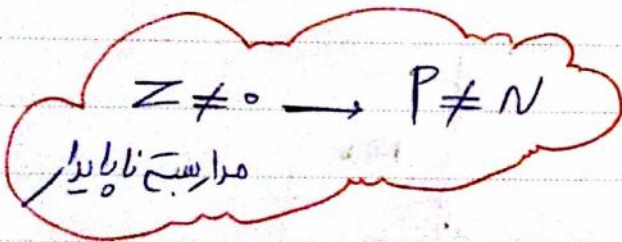 Z ≠ 0 → P ≠ N
مدار بسته ناپایدار